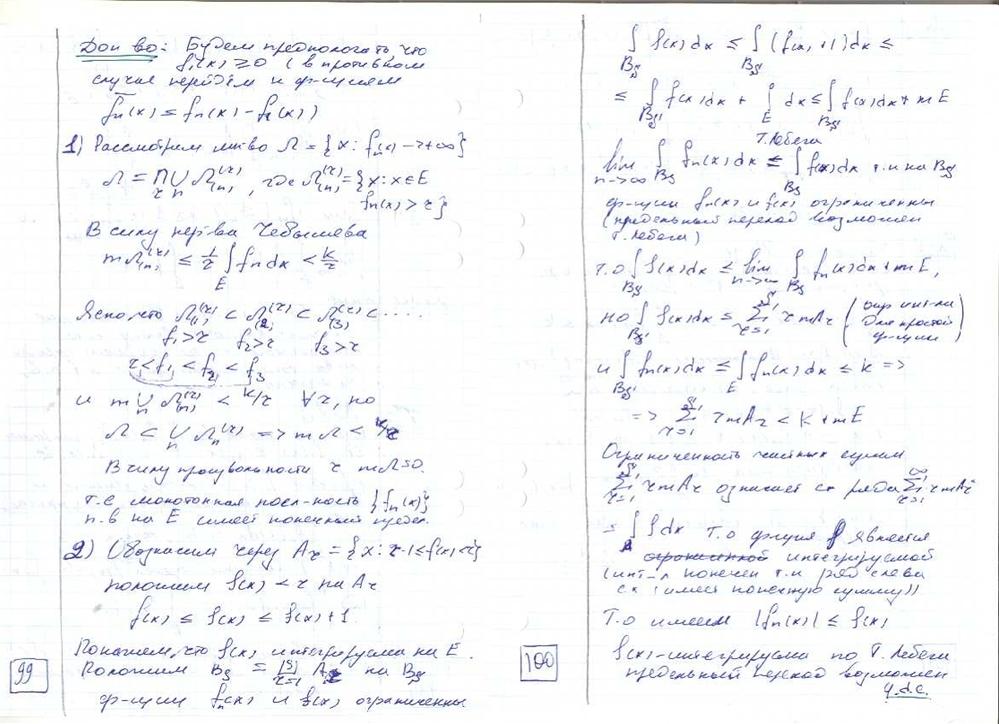 Док во: Будем предпологать что
f₁(x) ≥ 0 (в противном
случае перейдём к ф-циям
f̄ₙ(x) ≤ fₙ(x) - f₁(x))
1) Рассмотрим мн-во Ω = {x: fₙ(x) → +∞}
Ω = ∩_r ∪_n Ω_(n)^(r), где Ω_(n)^(r) = {x: x∈E
fₙ(x) > r}
В силу нер-ва Чебышева
mΩ_(n)^(r) ≤ 1/r ∫_E fₙ dx < k/r
Ясно, что Ω_(1)^(r) ⊂ Ω_(2)^(r) ⊂ Ω_(3)^(r) ⊂ ....
f₁>r f₂>r f₃>r
r < f₁ < f₂ < f₃
и m ∪_n Ω_(n)^(r) < k/r ∀r, но
Ω ⊂ ∪_n Ω_n^(r) => mΩ < k/r
В силу произвольности r mΩ=0.
т.е монотонная посл-ность {fₙ(x)}
п.в на E имеет конечный предел.
2) Обозначим через A_r = {x: r-1 ≤ f(x) < r}
положим φ(x) = r на A_r
f(x) ≤ φ(x) ≤ f(x)+1
Покажем, что φ(x) интегрируема на E.
Положим B_S = ∪_{r=1}^{S} A_r на B_S
ф-ции fₙ(x) и f(x) ограничены
99
∫_{B_S} φ(x)dx ≤ ∫_{B_S} (f(x)+1)dx ≤
≤ ∫_{B_S} f(x)dx + ∫_E dx ≤ ∫_{B_S} f(x)dx + mE
Т.Лебега
lim_{n→∞} ∫_{B_S} fₙ(x)dx = ∫_{B_S} f(x)dx т.к на B_S
ф-ции fₙ(x) и f(x) ограничены
(предельный переход возможен
Т.Лебега)
т.о ∫_{B_S} φ(x)dx ≤ lim_{n→∞} ∫_{B_S} fₙ(x)dx + mE,
но ∫_{B_S} φ(x)dx = ∑_{r=1}^{S} r mA_r (опр инт-ла
для простой
ф-ции)
и ∫_{B_S} fₙ(x)dx ≤ ∫_E fₙ(x)dx ≤ k =>
=> ∑_{r=1}^{S} r mA_r < k + mE
Ограниченность частных сумм
∑_{r=1}^{S} r mA_r означает сх ряда ∑_{r=1}^{∞} r mA_r
= ∫ φ dx т.о ф-ция φ является
интегрируемой
(инт-л конечен т.к ряд слева
сх (имеет конечную сумму))
Т.о имеем |fₙ(x)| ≤ φ(x)
φ(x) - интегрируема по Т. Лебега
предельный переход возможен
ч.т.д.
100